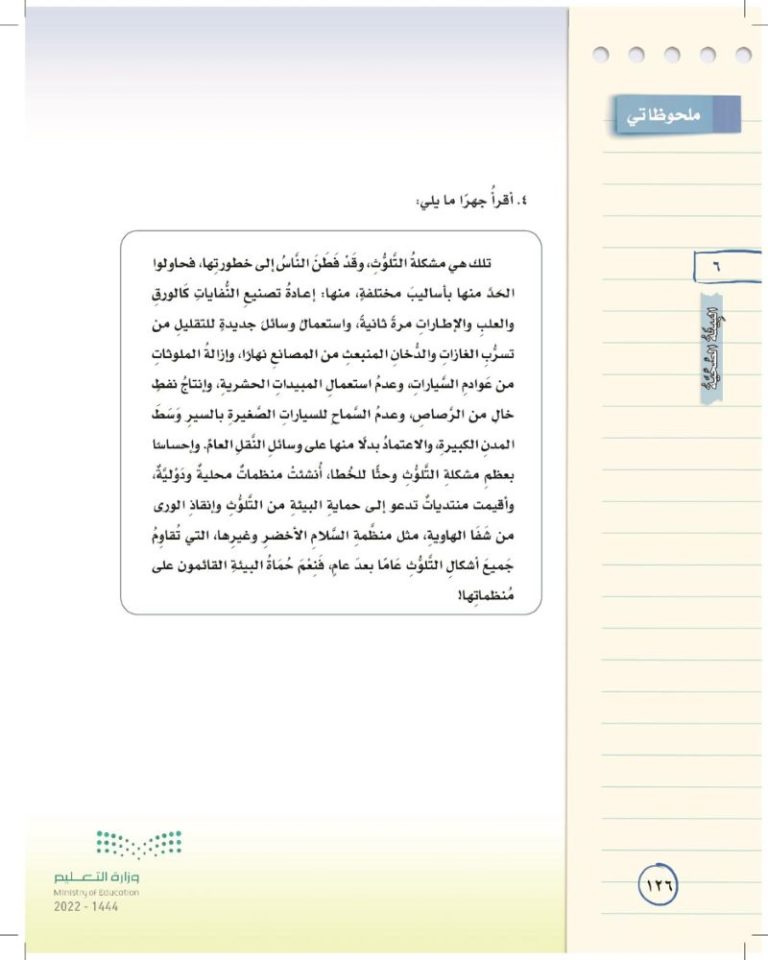 ملحوظاتي
٦
البيئة الصحية
٤. أقرأُ جهرًا ما يلي:
تلك هي مشكلةُ التَّلوُّثِ، وقَدْ فَطَنَ النَّاسُ إلى خطورتِها، فحاولوا
الحَدَّ منها بأساليبَ مختلفةٍ، منها: إعادةُ تصنيعِ النُّفاياتِ كَالورقِ
والعلبِ والإطاراتِ مرةً ثانيةً، واستعمالُ وسائلَ جديدةٍ للتقليلِ من
تسرُّبِ الغازاتِ والدُّخانِ المنبعثِ من المصانعِ نهارًا، وإزالةُ الملوثاتِ
من عَوادمِ السَّياراتِ، وعدمُ استعمالِ المبيداتِ الحشريةِ، وإنتاجُ نفطٍ
خالٍ من الرَّصاصِ، وعدمُ السَّماحِ للسياراتِ الصَّغيرةِ بالسيرِ وَسَطَ
المدنِ الكبيرةِ، والاعتمادُ بدلًا منها على وسائلِ النَّقلِ العامِّ. وإحساسًا
بعظمِ مشكلةِ التَّلوُّثِ وحثًّا للخُطا، أُنشئتْ منظماتٌ محليةٌ ودَوْليَّةٌ،
وأقيمت منتدياتٌ تدعو إلى حمايةِ البيئةِ من التَّلوُّثِ وإنقاذِ الورى
من شَفَا الهاويةِ، مثل منظَّمةِ السَّلامِ الأخضرِ وغيرِها، التي تُقاوِمُ
جَميعَ أشكالِ التَّلوُّثِ عَامًا بعدَ عامٍ، فَنِعْمَ حُمَاةُ البيئةِ القائمون على
مُنظماتِها!
وزارة التعـليم
Ministry of Education
2022 - 1444
١٢٦